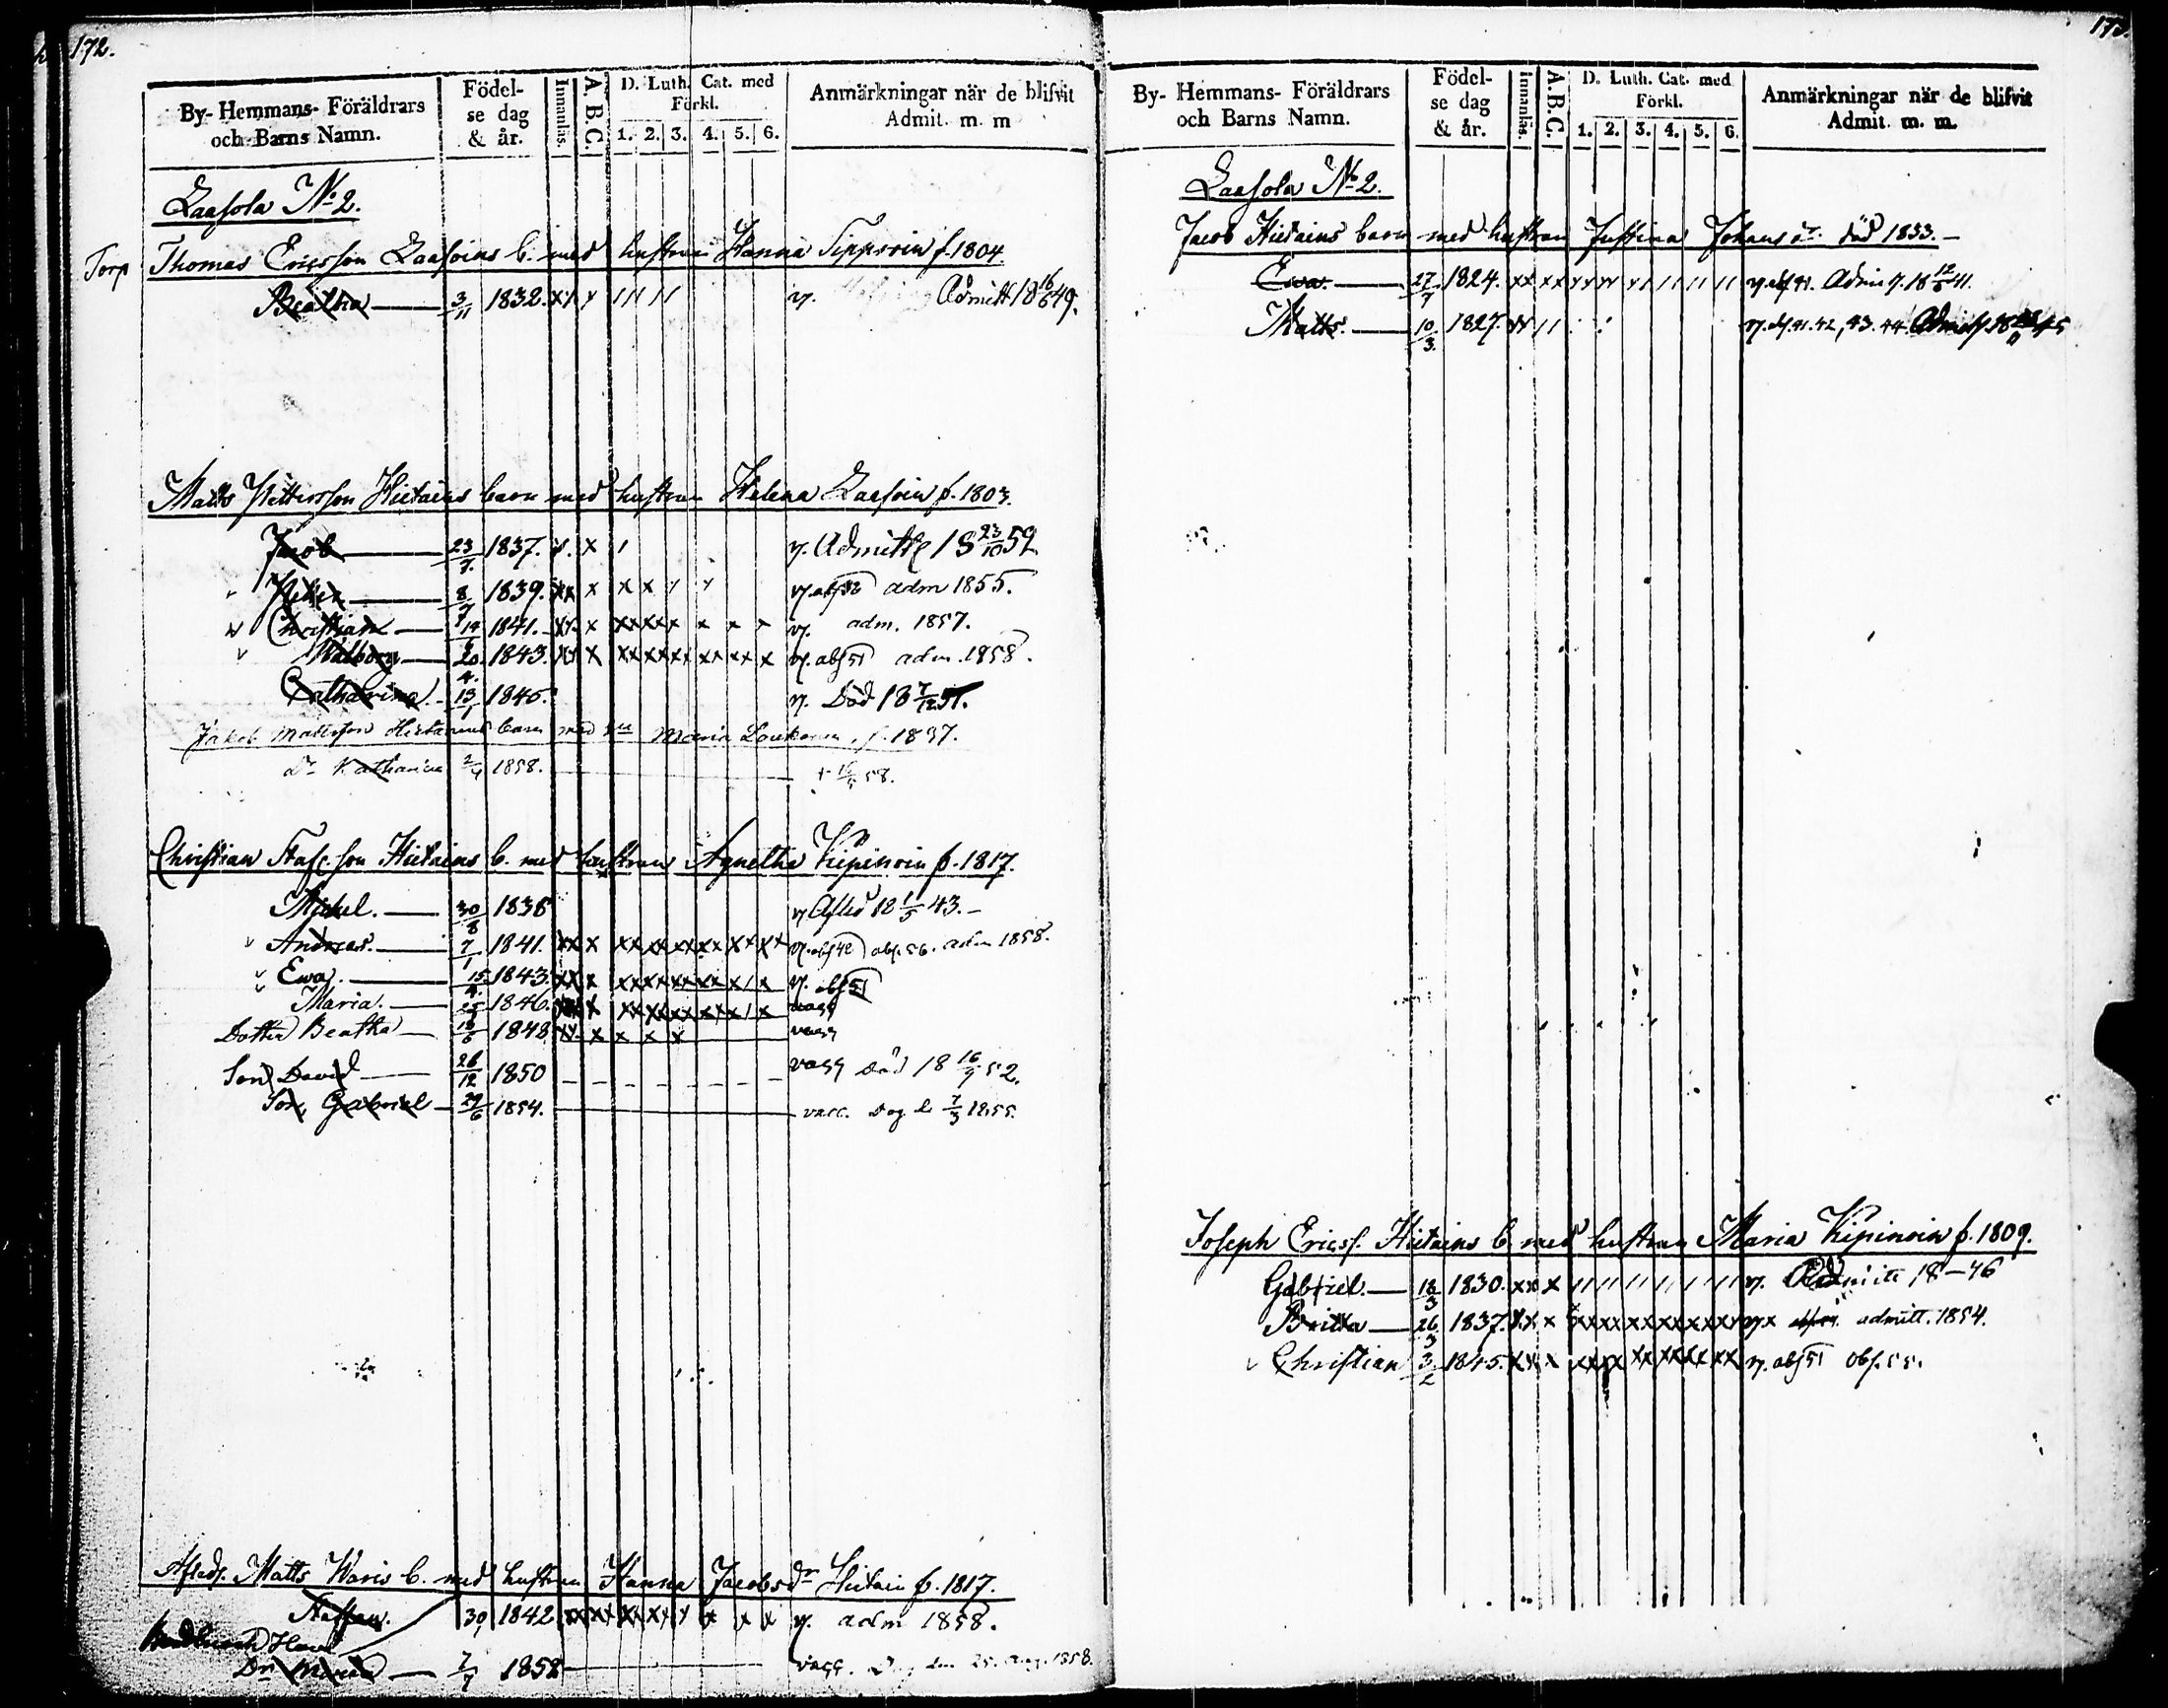 172.
By- Hemmans- Föräldrars och Barns Namn.
Födelse dag & år.
Innanläs.
A. B. C.
D. Luth. Cat. med Förkl.
1. 2. 3. 4. 5. 6.
Anmärkningar när de blifvit Admit. m. m
Laasola No 2.
Torp Thomas Ericsson Laasoins b. med hustrun Hanna Sippoin f. 1804.
Beatha 3/11 1832. Admitt 18 16/6 49.
Matts Pettersson Hietains barn med hustrun Helena Laasoin f. 1803.
Jacob 23/7 1837. v. Admitt 18 23/10 52
8/7 1839. v. adm 1855.
Christian 1841. v. adm. 1857.
Walborg 20/4 1843. v. abs 51 adm. 1858.
Catharina 13/1 1846. v. Död 18 7/12 51.
Jakob Mattsson Hietanens barn med Maria Loukonen, f. 1837.
Dr Katharina 2/4 1858. 58.
Christian Staf:son Hietains b. med hustrun Agnetha Kipinoin f. 1817.
Michel. 30/8 1838 v Afled 18 1/5 43.
Andreas. 7/1 1841. v. abs. 56. adm 1858.
Ewa. 15/4 1843. v. abs 51
Maria. 25 1846. vacc
Dotter Beatha 1848 vacc
Son David 26/12 1850 vacc död 18 16/9 52.
Son, Gabriel 29/6 1854. vacc. Dog d. 7/3 1855.
Afled. Matts Waris b. med hustrun Hanna Jacobsdr Hietain f. 1817.
Staffan. 30 1842 v. adm 1858.
Dr Maria 7/7 1852 vacc. Dog den 25. Aug. 1858.
By- Hemmans- Föräldrars och Barns Namn.
Födelse dag & år.
Innanläs.
A. B. C.
D. Luth. Cat. med Förkl.
1. 2. 3. 4. 5. 6.
Anmärkningar när de blifvit Admit. m. m.
Laasola No 2.
Jacob Hietains barn med hustrun Justina Johansdr. död 1833.
Ewa. 27/7 1824. 18 12/6 41.
Matts. 10/3 1827.
Joseph Ericss. Hietains b. med hustrun Maria Kipinoin f. 1809.
Gabriel. 18/3 1830. v. Admitt 18-46
Britta 26/3 1837. admitt. 1854.
Christian 3/2 1845. v. abs 51 obs. 55.